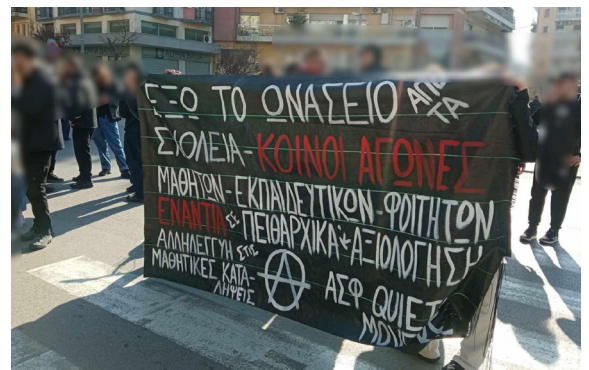 ΕΞΩ ΤΟ ΩΝΑΣΕΙΟ ΑΠΟ ΤΑ
ΣΧΟΛΕΙΑ - ΚΟΙΝΟΙ ΑΓΩΝΕΣ
ΜΑΘΗΤΩΝ - ΕΚΠΑΙΔΕΥΤΙΚΩΝ - ΦΟΙΤΗΤΩΝ
ΕΝΑΝΤΙΑ ΣΕ ΠΕΙΘΑΡΧΙΚΑ + ΑΞΙΟΛΟΓΗΣΗ
ΑΛΛΗΛΕΓΓΥΗ ΣΤΙΣ
ΜΑΘΗΤΙΚΕΣ ΚΑΤΑ-
ΛΗΨΕΙΣ
ΑΣΦ QUIET